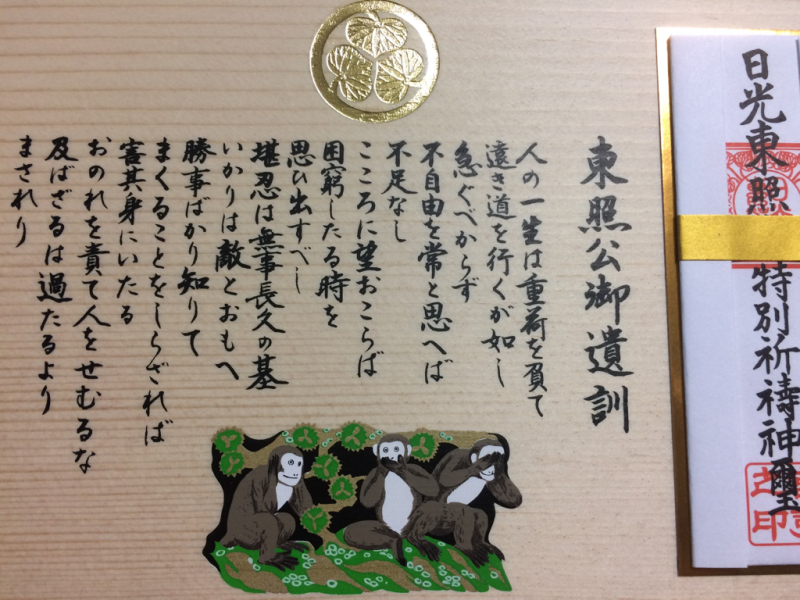 東照公御遺訓
人の一生は重荷を負て
遠き道を行くが如し
急ぐべからず
不自由を常と思へば
不足なし
こころに望おこらば
困窮したる時を
思ひ出すべし
堪忍は無事長久の基
いかりは敵とおもへ
勝事ばかり知りて
まくることをしらざれば
害其身にいたる
おのれを責て人をせむるな
及ばざるは過たるより
まされり
日光東照 特別祈禱神璽